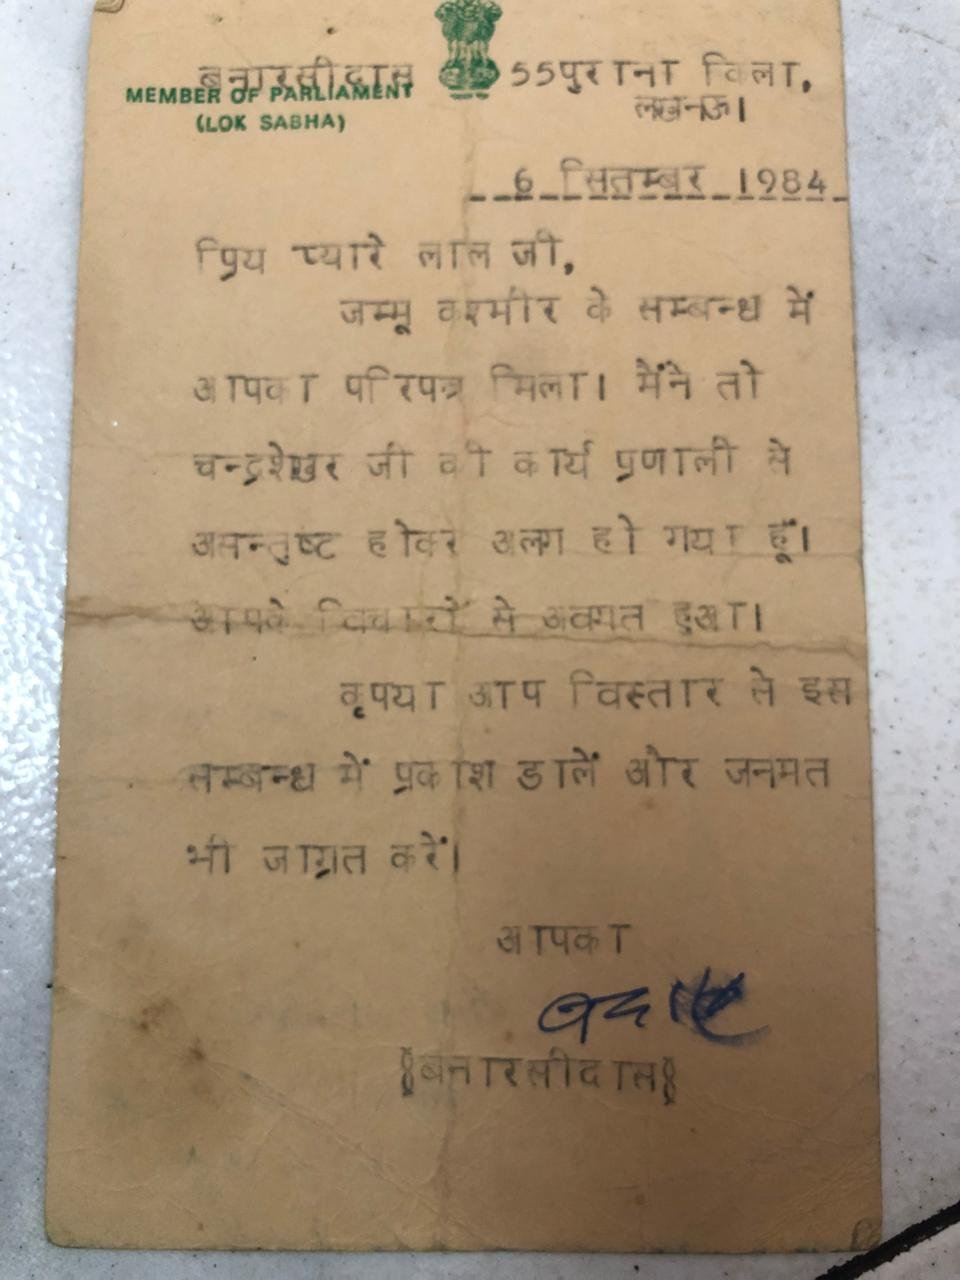 बनारसीदास
MEMBER OF PARLIAMENT
(LOK SABHA)
55पुराना किला,
लखनऊ।
6 सितम्बर 1984
प्रिय प्यारे लाल जी,
जम्मू कश्मीर के सम्बन्ध में
आपका परिपत्र मिला। मैंने तो
चन्द्रशेखर जी की कार्य प्रणाली से
असन्तुष्ट होकर अलग हो गया हूं।
आपके विचारों से अवगत हुआ।
कृपया आप विस्तार से इस
सम्बन्ध में प्रकाश डालें और जनमत
भी जाग्रत करें।
आपका
(बनारसीदास)